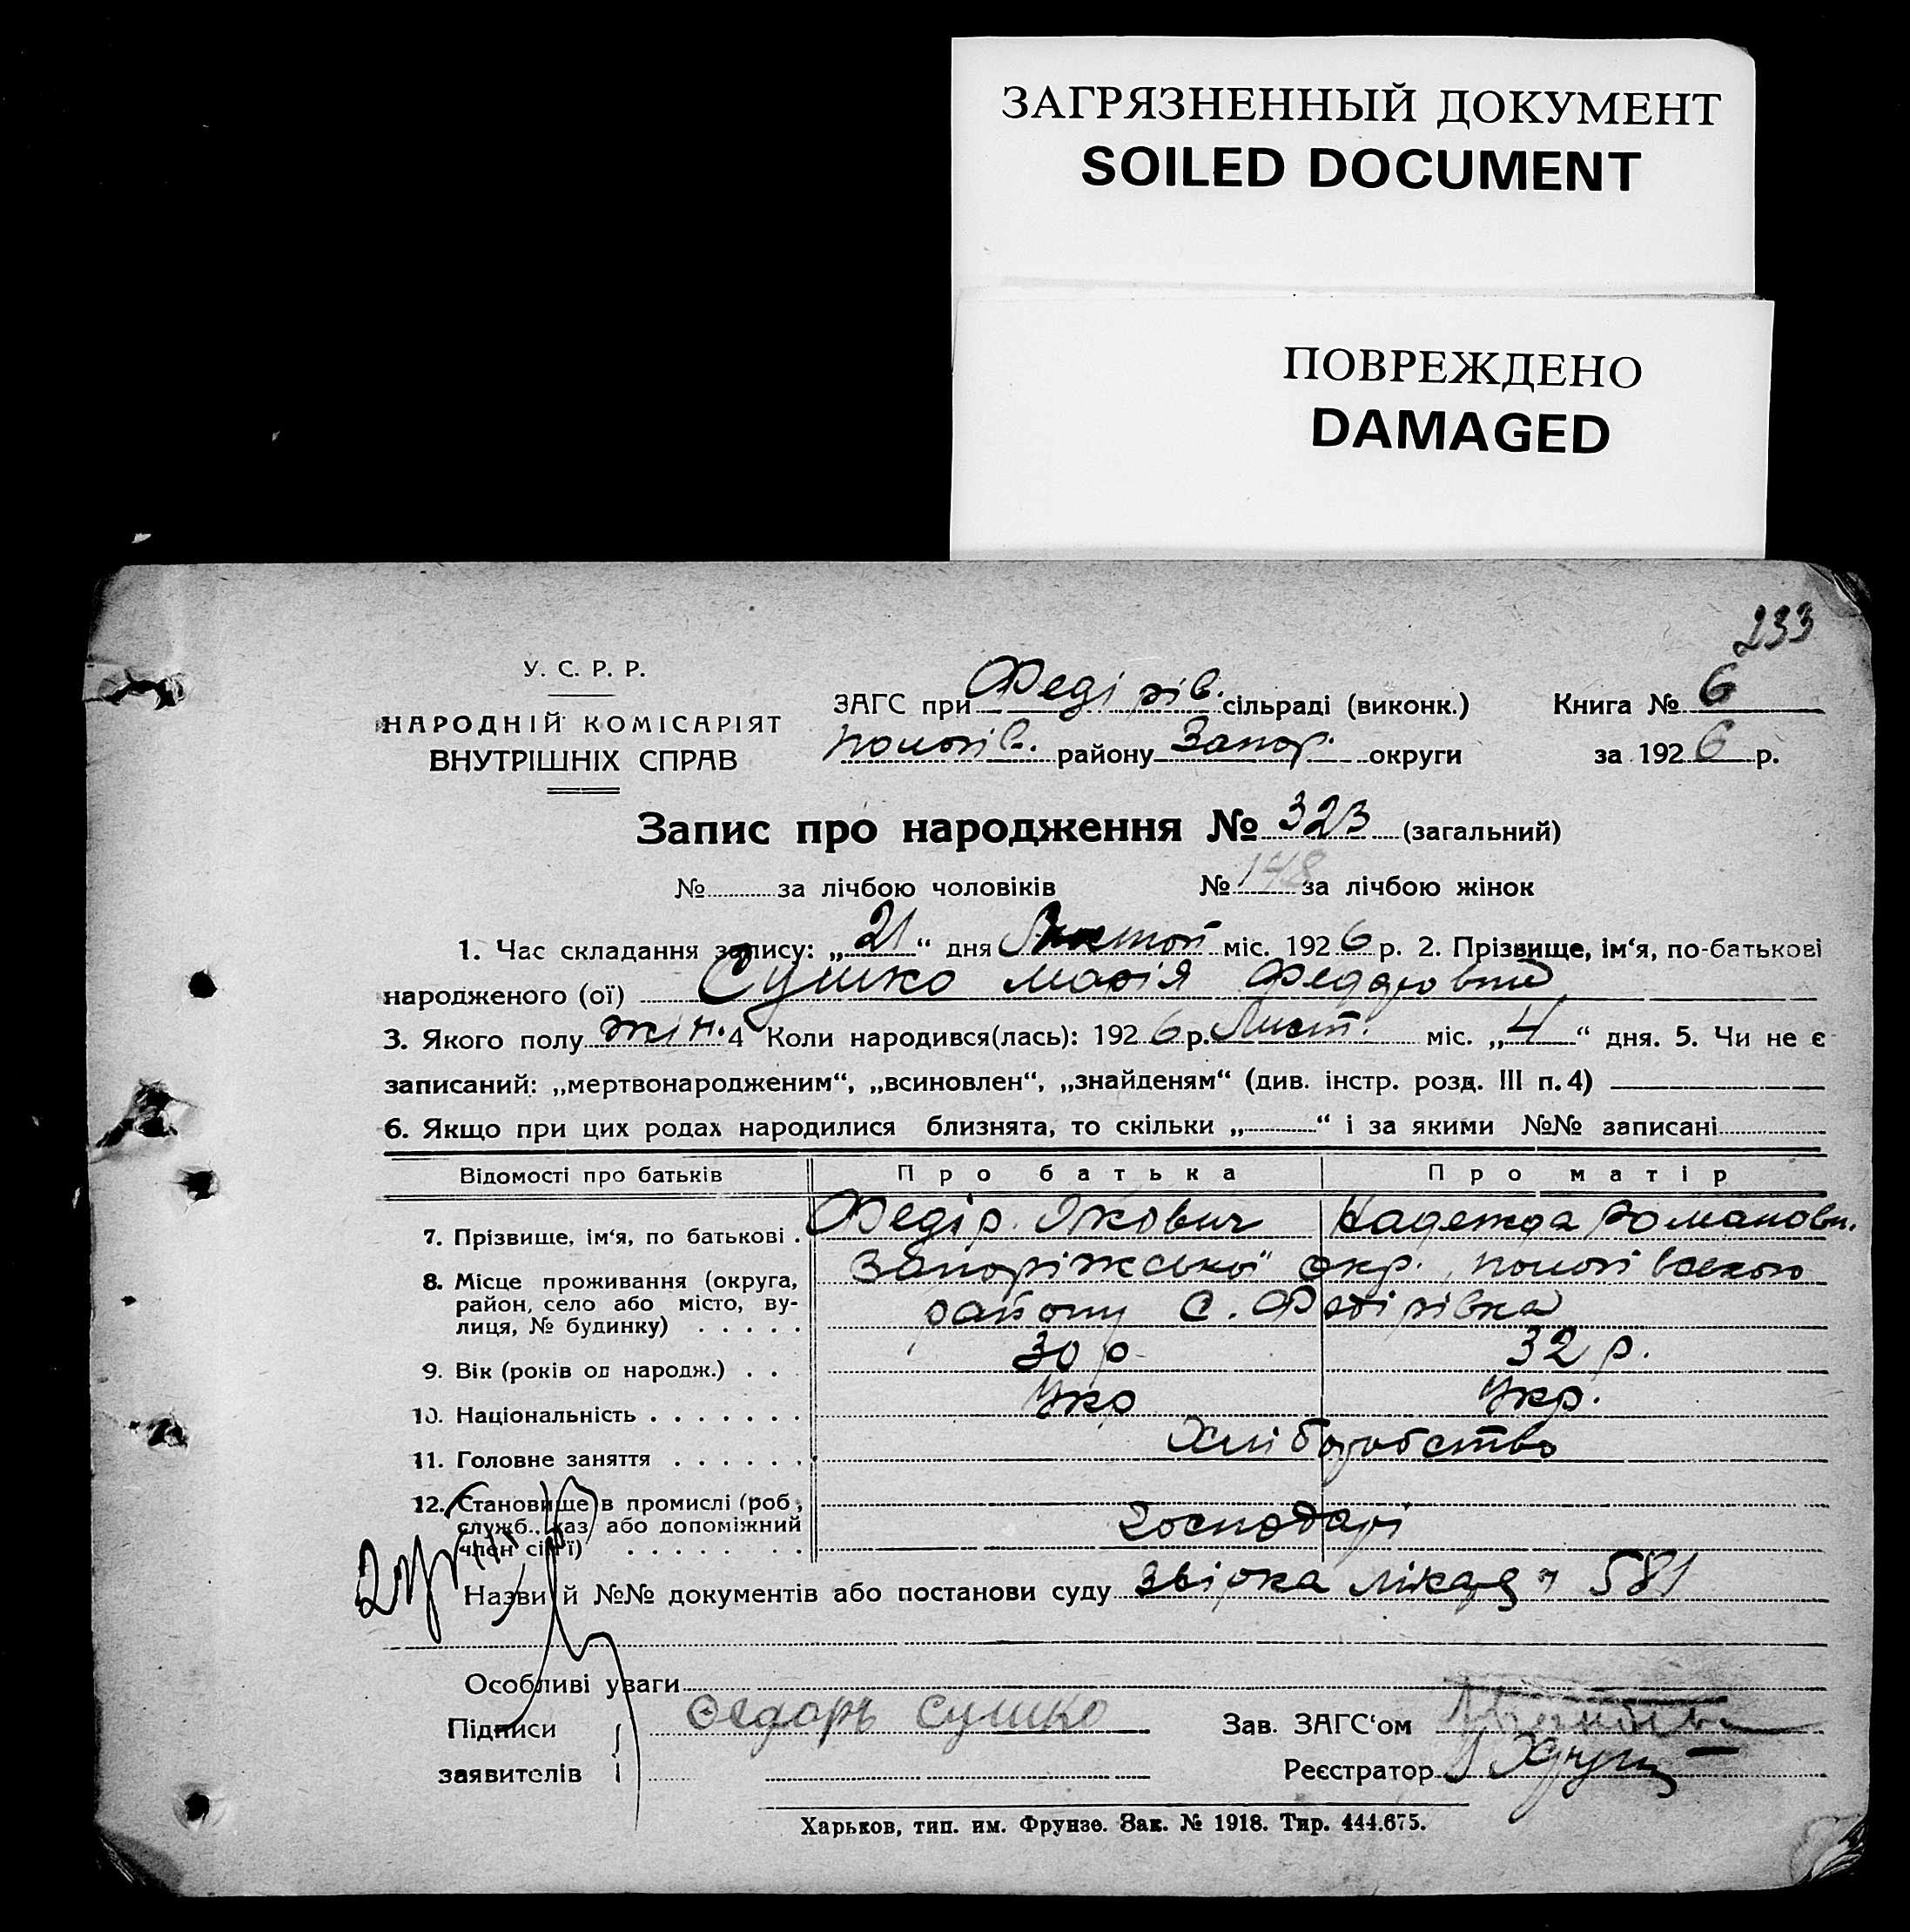 ЗАГРЯЗНЕННЫЙ ДОКУМЕНТ
SOILED DOCUMENT
ПОВРЕЖДЕНО
DAMAGED
233
У. С. Р. Р.
НАРОДНІЙ КОМІСАРІЯТ
ВНУТРІШНІХ СПРАВ
ЗАГС при Федірів. сільраді (виконк.) Книга № 6
Пологів. району Запор. округи за 1926 р.
Запис про народження № 323 (загальний)
№ за лічбою чоловіків № 148 за лічбою жінок
1. Час складання запису: „21“ дня міс. 1926 р. 2. Прізвище, ім‘я, по-батькові
народженого (ої) Сушко Марія Федоровна
3. Якого полу жін. 4 Коли народився(лась): 1926 р. Лист. міс. „4“ дня. 5. Чи не є
записаний: „мертвонародженим“, „всиновлен“, „знайденям“ (див. інстр. розд. III п. 4)
6. Якщо при цих родах народилися близнята, то скільки „ “ і за якими №№ записані
Відомості про батьків Про батька Про матір
7. Прізвище, ім‘я, по батькові . Федір Якович Надежда Романовн.
8. Місце проживання (округа, Запоріжської окр., Пологівського
район, село або місто, ву- району с. Федірівка
лиця, № будинку) . . . . .
9. Вік (років од народж.) . . 30 р. 32 р.
10. Національність . . . . . . . Укр Укр.
11. Головне заняття . . . . . . Хліборобство
12. Становище в промислі (роб.,
служб., хаз. або допоміжний Господарі
член сім‘ї) . . . . . . .
Назви й №№ документів або постанови суду Звірка лікаря 581
Особливі уваги
Підписи Ѳедоръ Сушко Зав. ЗАГС‘ом
заявителів Реєстратор
Харьков, тип. им. Фрунзе. Зак. № 1918. Тир. 444.675.